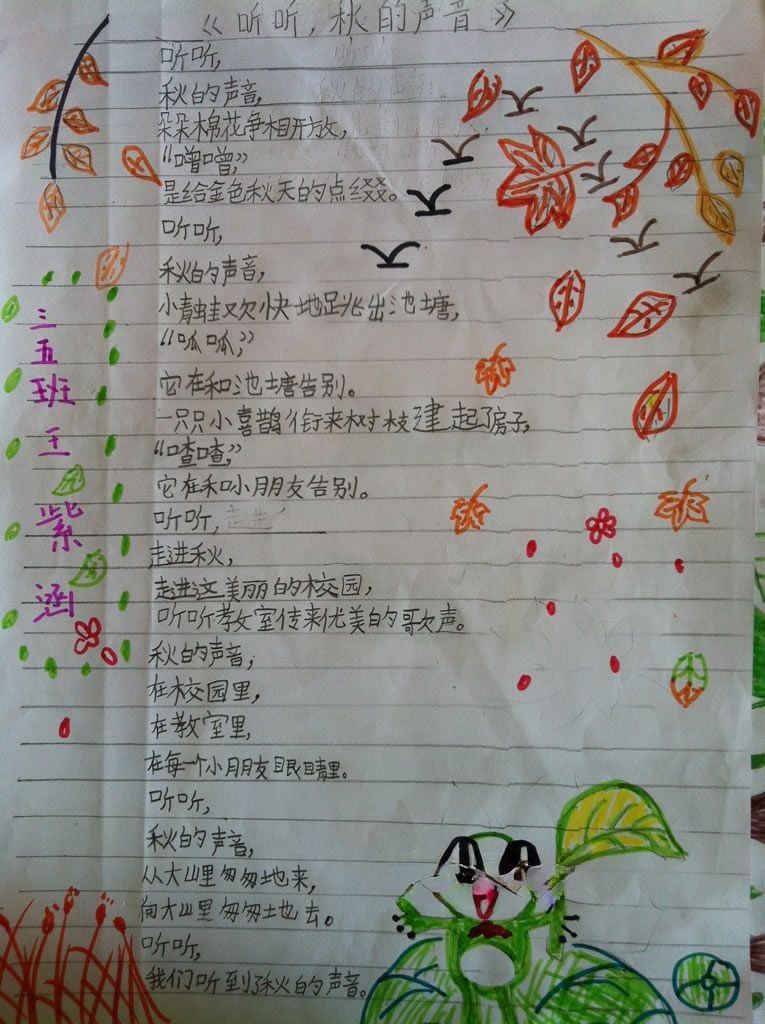 《听听,秋的声音》
听听,
秋的声音,
朵朵棉花争相开放,
“噌噌,”
是给金色秋天的点缀。
听听,
秋的声音,
小青蛙欢快地跳出池塘,
“呱呱,”
它在和池塘告别。
一只只小喜鹊衔来树枝建起了房子,
“喳喳,”
它在和小朋友告别。
听听,走进
走进秋,
走进这美丽的校园,
听听教室传来优美的歌声。
秋的声音,
在校园里,
在教室里,
在每一个小朋友眼睛里。
听听,
秋的声音,
从大山里匆匆地来,
向大山里匆匆地去。
听听,
我们听到了秋的声音。
三五班王紫涵